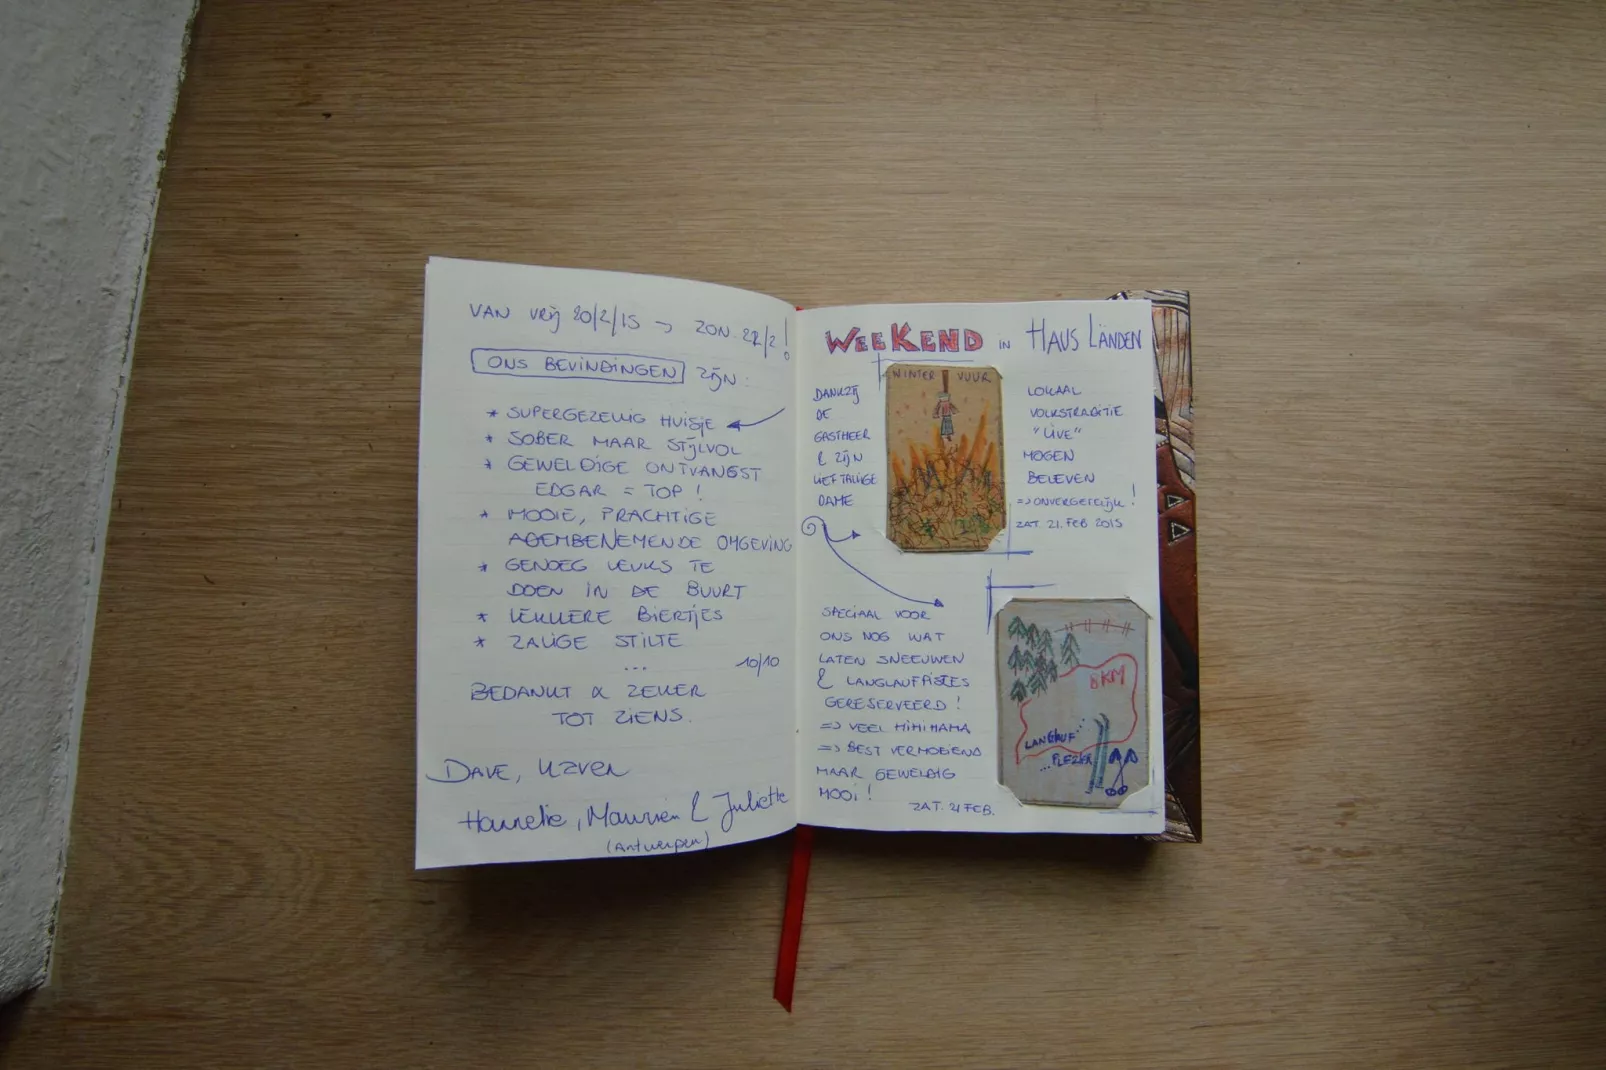 VAN VRIJ 20/2/15 → ZON 22/2!
ONS BEVINDINGEN ZIJN:
* SUPERGEZELLIG HUISJE
* SOBER MAAR STIJLVOL
* GEWELDIGE ONTVANGST
EDGAR = TOP!
* MOOIE, PRACHTIGE
ADEMBENEMENDE OMGEVING
* GENOEG LEUKS TE
DOEN IN DE BUURT
* LEKKERE BIERTJES
* ZALIGE STILTE
...
10/10
BEDANKT & ZEKER
TOT ZIENS.
DAVE,
Hannelie, & Juliette
(Antwerpen)
WEEKEND IN HAUS LÄNDEN
DANKZIJ
DE
GASTHEER
& ZIJN
LIEFTALLIGE
DAME
WINTER VUUR
LOKAAL
VOLKSTRADITIE
"LIVE"
MOGEN
BELEVEN
=> ONVERGETELIJK!
ZAT. 21. FEB 2015
SPECIAAL VOOR
ONS NOG WAT
LATEN SNEEUWEN
& LANGLAUFPISTES
GERESERVEERD!
=> VEEL MIMIMAMA
=> BEST VERMOEIEND
MAAR GEWELDIG
MOOI!
ZAT. 21 FEB.
8KM
LANGLAUF...
...PLEZIER